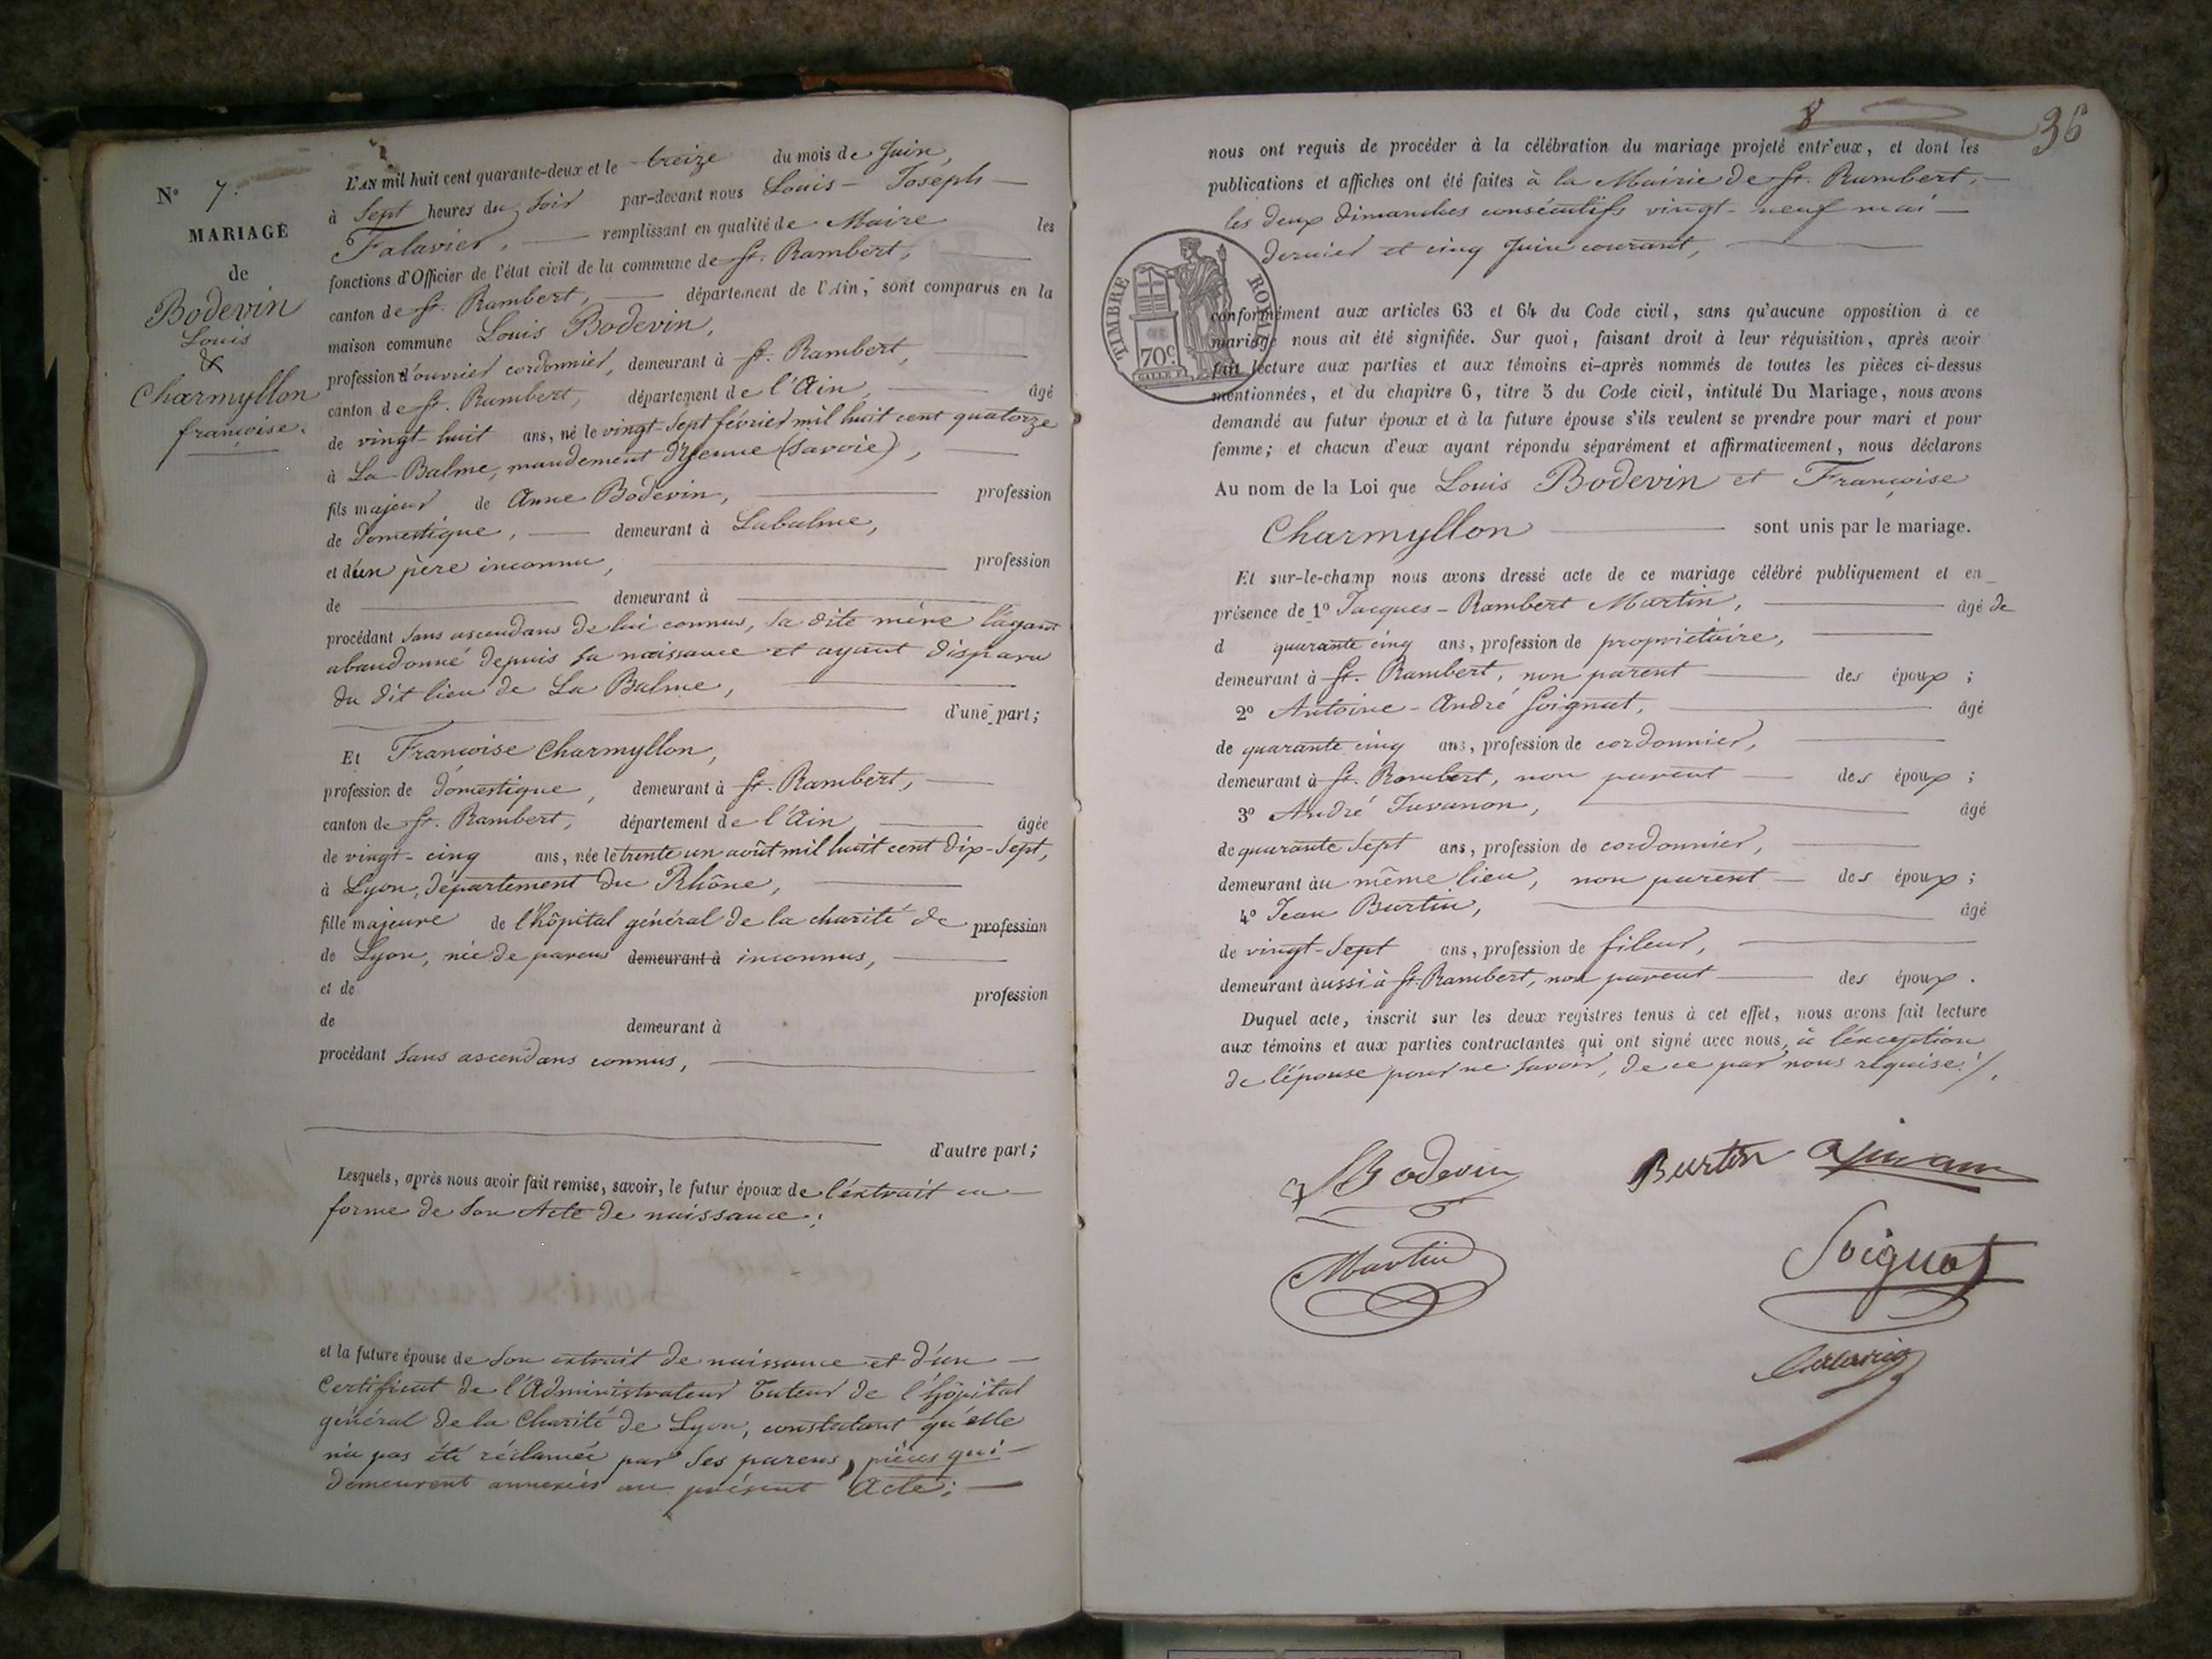 N° 7.
MARIAGE
de
Bodevin
Louis
&
Charmyllon
françoise.
L'AN mil huit cent quarante-deux et le treize du mois de Juin,
à Sept heures du Soir par-devant nous Louis-Joseph
Falavier, remplissant en qualité de Maire les
fonctions d'Officier de l'état civil de la commune de St. Rambert,
canton de St. Rambert, département de l'Ain, sont comparus en la
maison commune Louis Bodevin,
profession d'ouvrier cordonnier, demeurant à St. Rambert,
canton de St. Rambert, département de l'Ain, âgé
de vingt-huit ans, né le vingt-sept février mil huit cent quatorze
à La Balme, mandement d'Yenne (Savoie),
fils majeur de Anne Bodevin, profession
de domestique, demeurant à Labalme,
et d'un père inconnu, profession
de demeurant à
procédant sans ascendans de lui connus, sa dite mère l'ayant
abandonné depuis sa naissance et ayant disparu
du dit lieu de La Balme,
d'une part;
Et Françoise Charmyllon,
profession de domestique, demeurant à St. Rambert,
canton de St. Rambert, département de l'Ain, âgée
de vingt-cinq ans, née le trente un août mil huit cent dix-sept,
à Lyon, département du Rhône,
fille majeure de l'hôpital général de la charité de profession
de Lyon, née de parens demeurant à inconnus,
et de profession
de demeurant à
procédant sans ascendans connus,
d'autre part;
Lesquels, après nous avoir fait remise, savoir, le futur époux de l'extrait en
forme de son Acte de naissance;
et la future épouse de son extrait de naissance et d'un
Certificat de l'Administrateur Tuteur de l'hôpital
général de la Charité de Lyon, constatant qu'elle
n'a pas été réclamée par ses parens, pièces qui
demeurent annexées au présent Acte;
8
36
nous ont requis de procéder à la célébration du mariage projeté entr'eux, et dont les
publications et affiches ont été faites à la Mairie de St. Rambert,
les deux dimanches consécutifs vingt-neuf mai
dernier et cinq Juin courant,
TIMBRE ROYAL
70c.
conformément aux articles 63 et 64 du Code civil, sans qu'aucune opposition à ce
mariage nous ait été signifiée. Sur quoi, faisant droit à leur réquisition, après avoir
fait lecture aux parties et aux témoins ci-après nommés de toutes les pièces ci-dessus
mentionnées, et du chapitre 6, titre 5 du Code civil, intitulé Du Mariage, nous avons
demandé au futur époux et à la future épouse s'ils veulent se prendre pour mari et pour
femme; et chacun d'eux ayant répondu séparément et affirmativement, nous déclarons
Au nom de la Loi que Louis Bodevin et Françoise
Charmyllon sont unis par le mariage.
Et sur-le-champ nous avons dressé acte de ce mariage célébré publiquement et en
présence de 1° Jacques-Rambert Martin, âgé de
d quarante cinq ans, profession de propriétaire,
demeurant à St. Rambert, non parent des époux;
2° Antoine-André Soignat, âgé
de quarante cinq ans, profession de cordonnier,
demeurant à St. Rambert, non parent des époux;
3° André Juvanon, âgé
de quarante sept ans, profession de cordonnier,
demeurant au même lieu, non parent des époux;
4° Jean Burtin, âgé
de vingt-sept ans, profession de fileur,
demeurant aussi à St. Rambert, non parent des époux.
Duquel acte, inscrit sur les deux registres tenus à cet effet, nous avons fait lecture
aux témoins et aux parties contractantes qui ont signé avec nous, à l'exception
de l'épouse pour ne savoir, de ce par nous requise./.
Bodevin
Burtin
Martin
Soignat